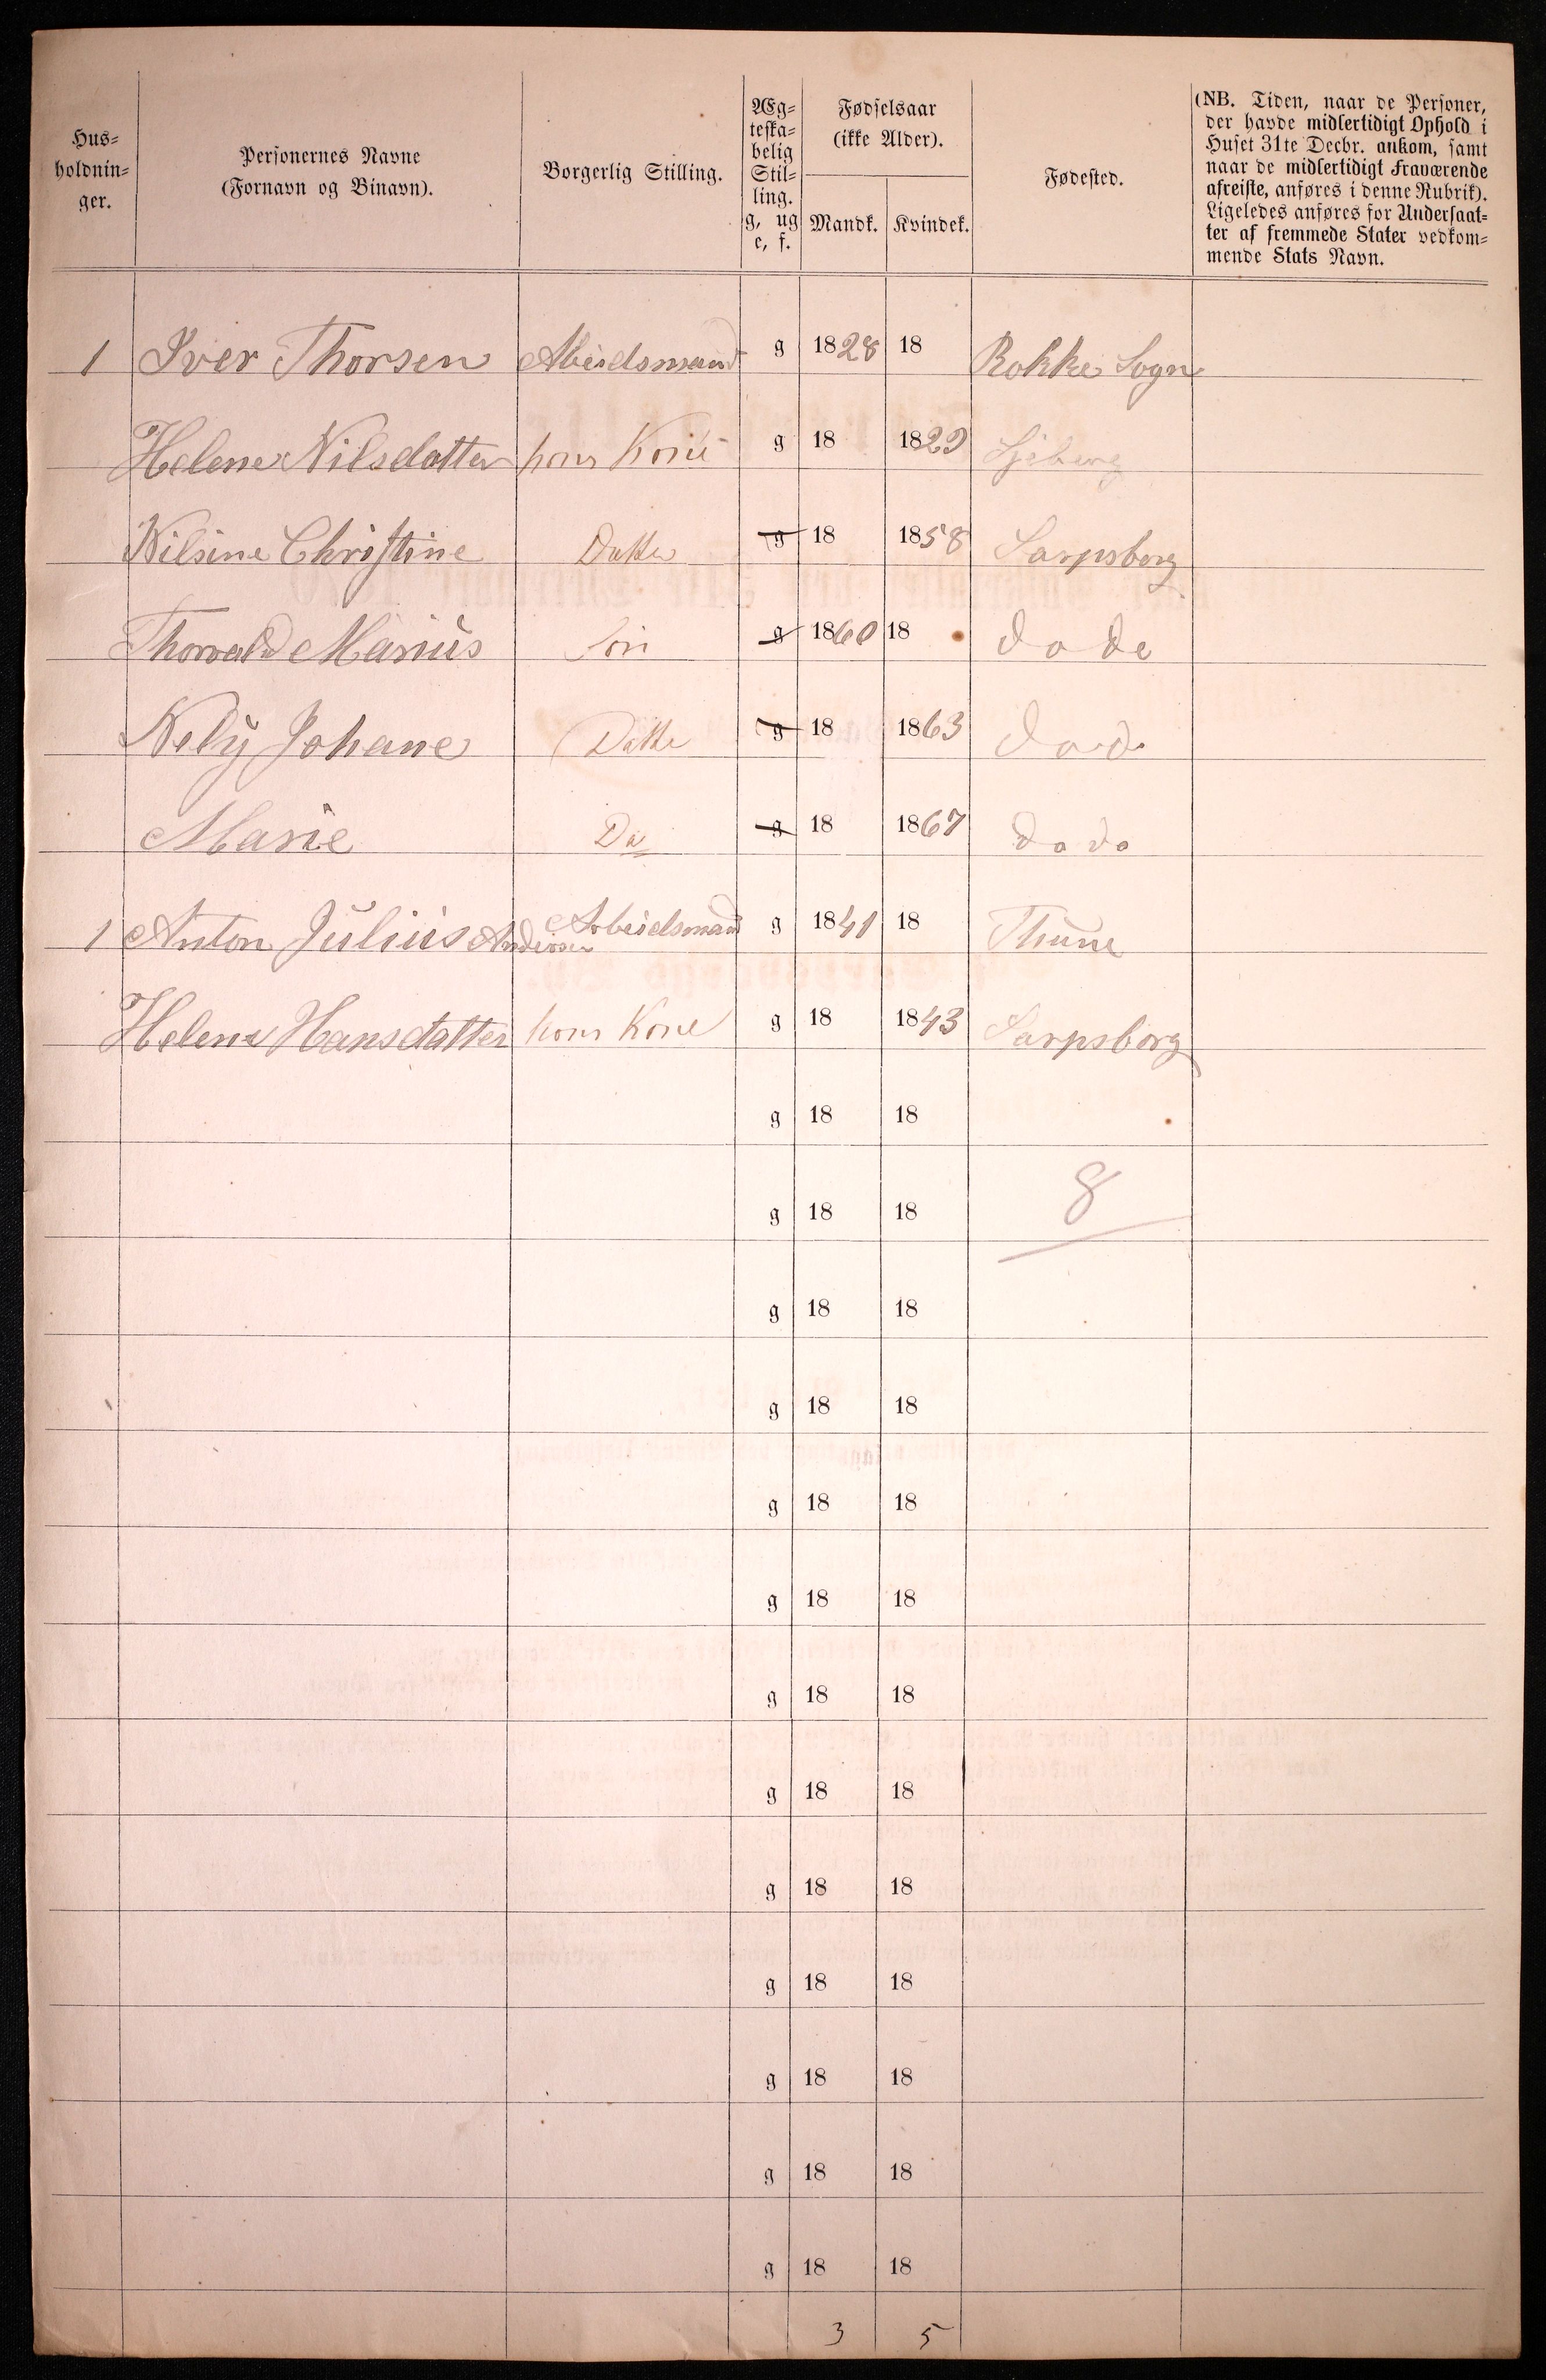 Hus-
holdnin-
ger.
Personernes Navne
(Fornavn og Binavn).
Borgerlig Stilling.
Æg-
teska-
belig
Stil-
ling.
g, ug
e, f.
Fødselsaar
(ikke Alder).
Mandk. Kvindek.
Fødested.
(NB. Tiden, naar de Personer,
der havde midlertidigt Ophold i
Huset 31te Decbr. ankom, samt
naar de midlertidigt Fraværende
afreiste, anføres i denne Rubrik).
Ligeledes anføres for Undersaat-
ter af fremmede Stater vedkom-
mende Stats Navn.
1 Iver Thorsen Abeidsmand g 1828 18 Rokke Sogn
Helene Nilsdatter hans Kone g 18 1829 Sjeberg
Nilsine Christine Datter g 18 1858 Sarpsborg
Thorvald Marius Søn g 1860 18 do de
Nely Johane Datte g 18 1863 do do
Marie Do g 18 1867 do do
1 Anton Julius Andersen Arbeidsmand g 1841 18 Thune
Helene Hansdatter hans Kone g 18 1843 Sarpsborg
g 18 18
g 18 18 8
g 18 18
g 18 18
g 18 18
g 18 18
g 18 18
g 18 18
g 18 18
g 18 18
g 18 18
g 18 18
g 18 18
3 5